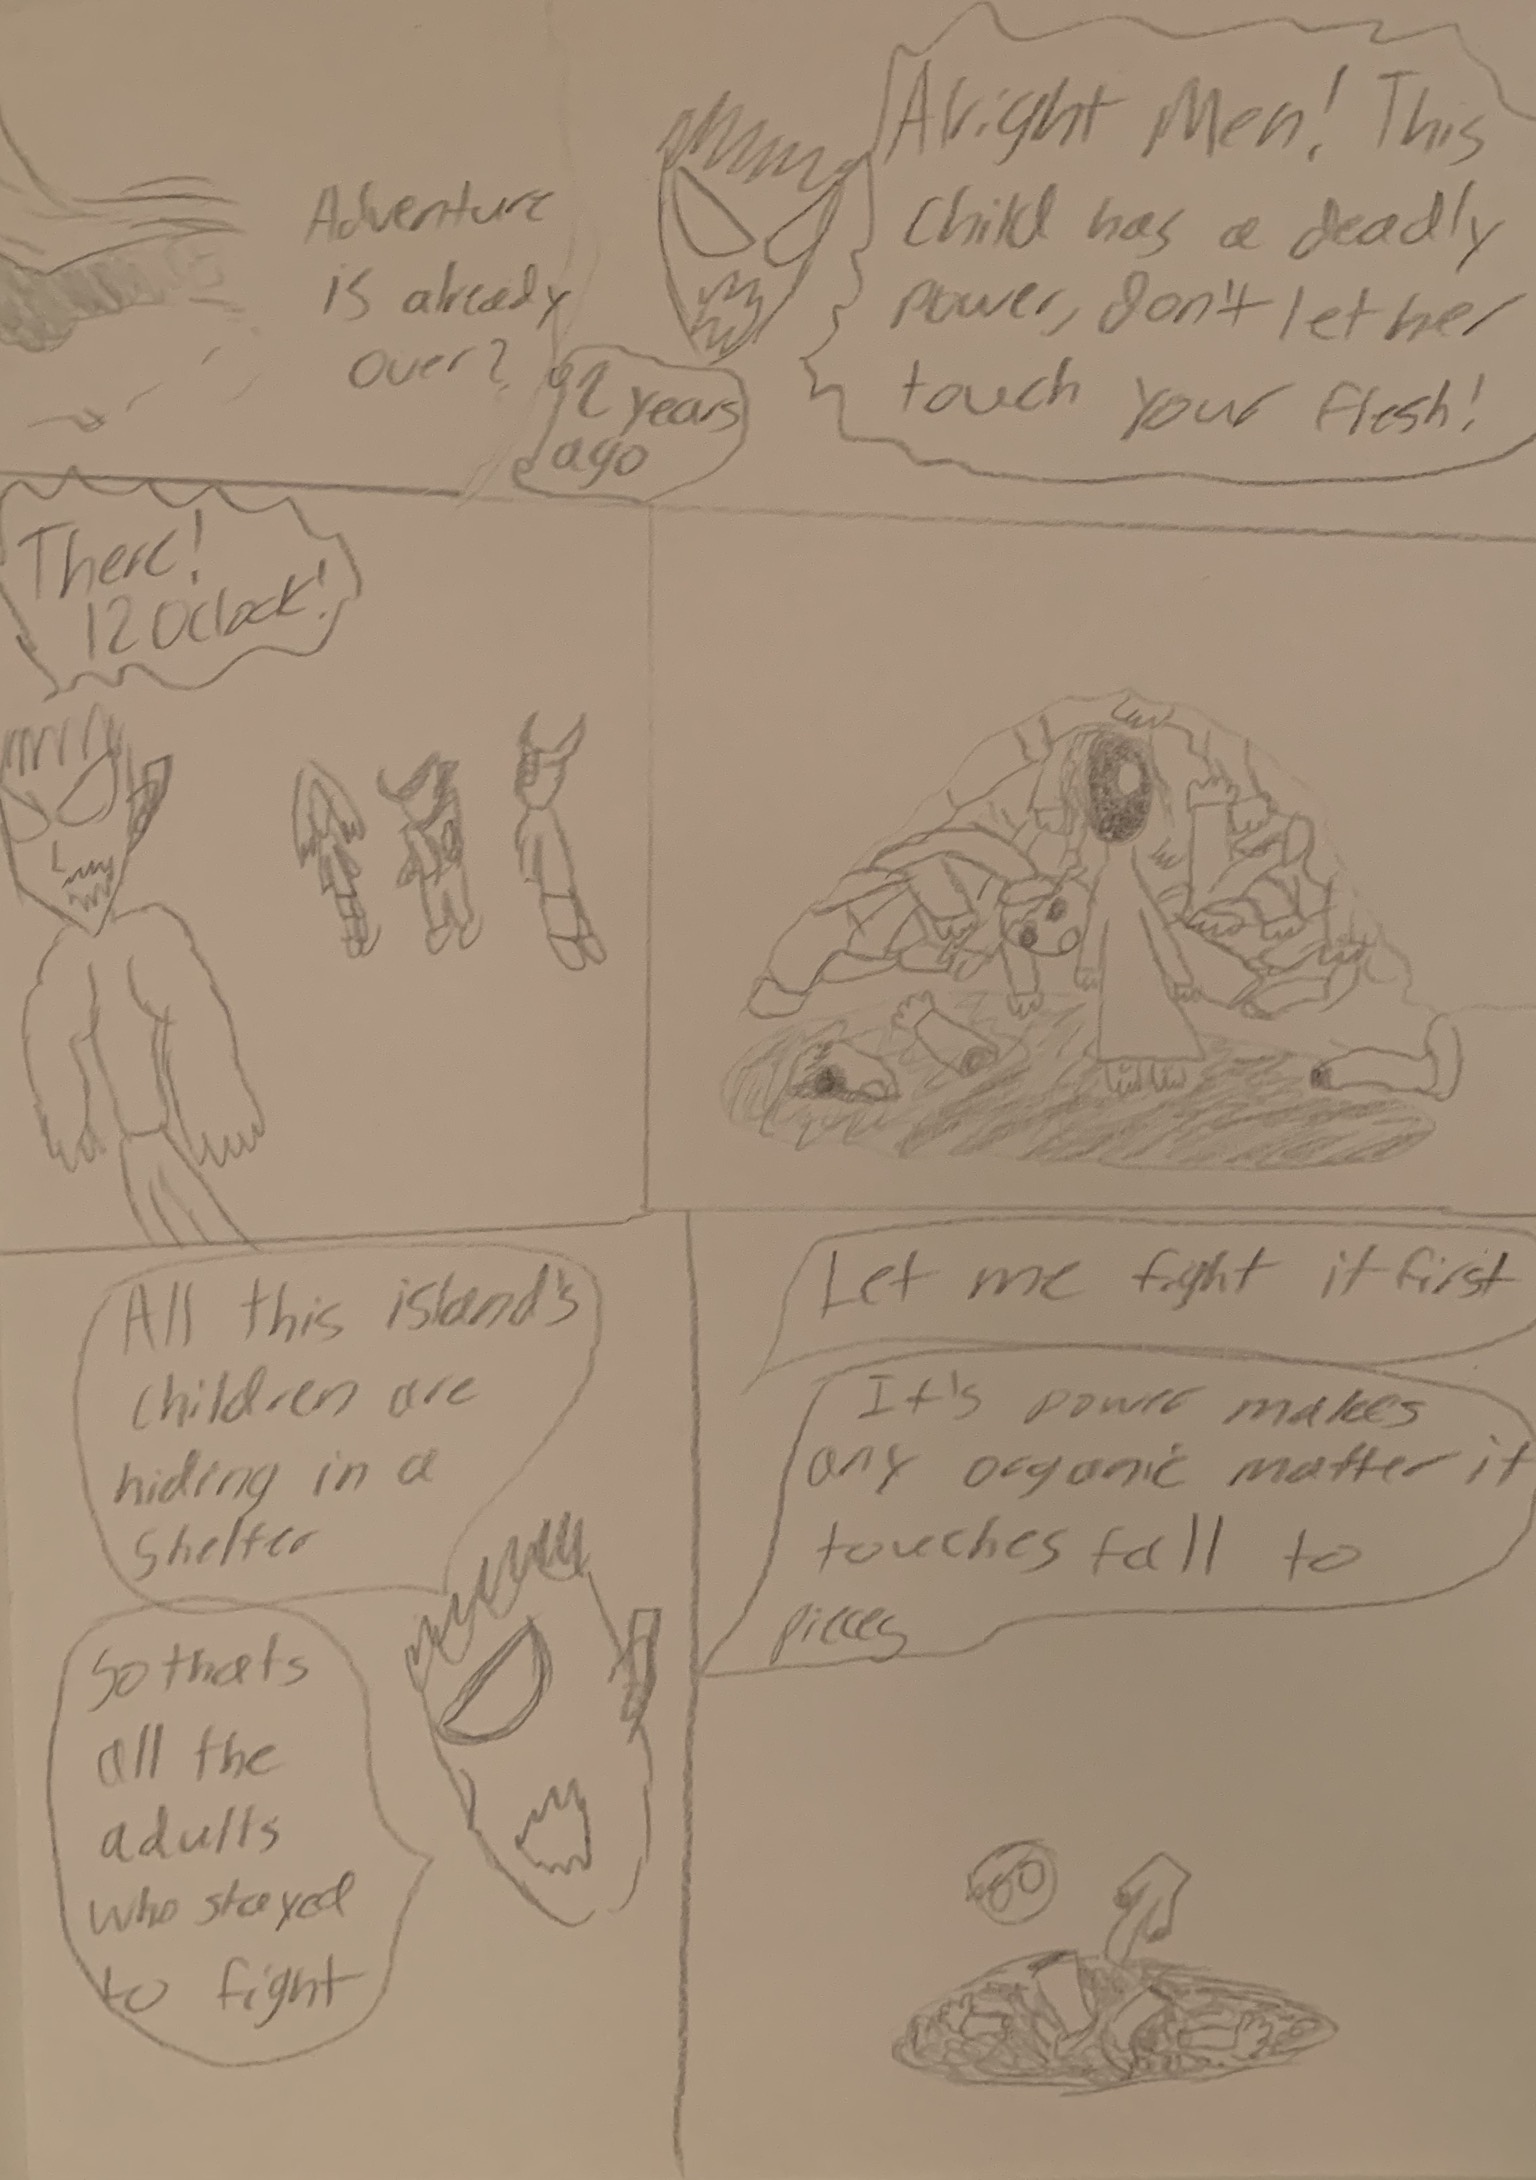 Adventure
is already
over?
2 years
ago
Alright Men! This
Child has a deadly
power, don't let her
touch your flesh!
There!
12 Oclock!
All this island's
children are
hiding in a
shelter
So thats
all the
adults
who stayed
to fight
Let me fight it first
It's power makes
any organic matter it
touches fall to
pieces